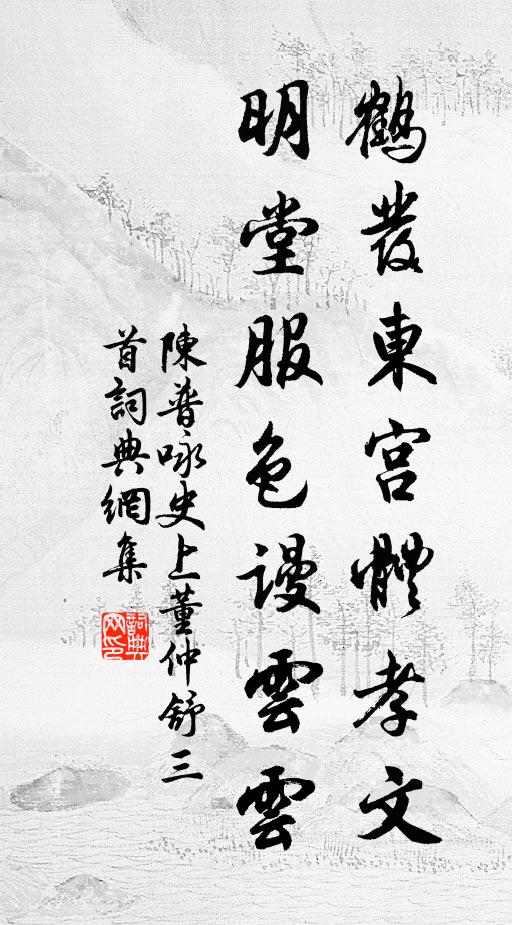 鶴發東宮體孝文
明堂服色謾雲雲
陳普咏史上董仲舒三
首詞典網集